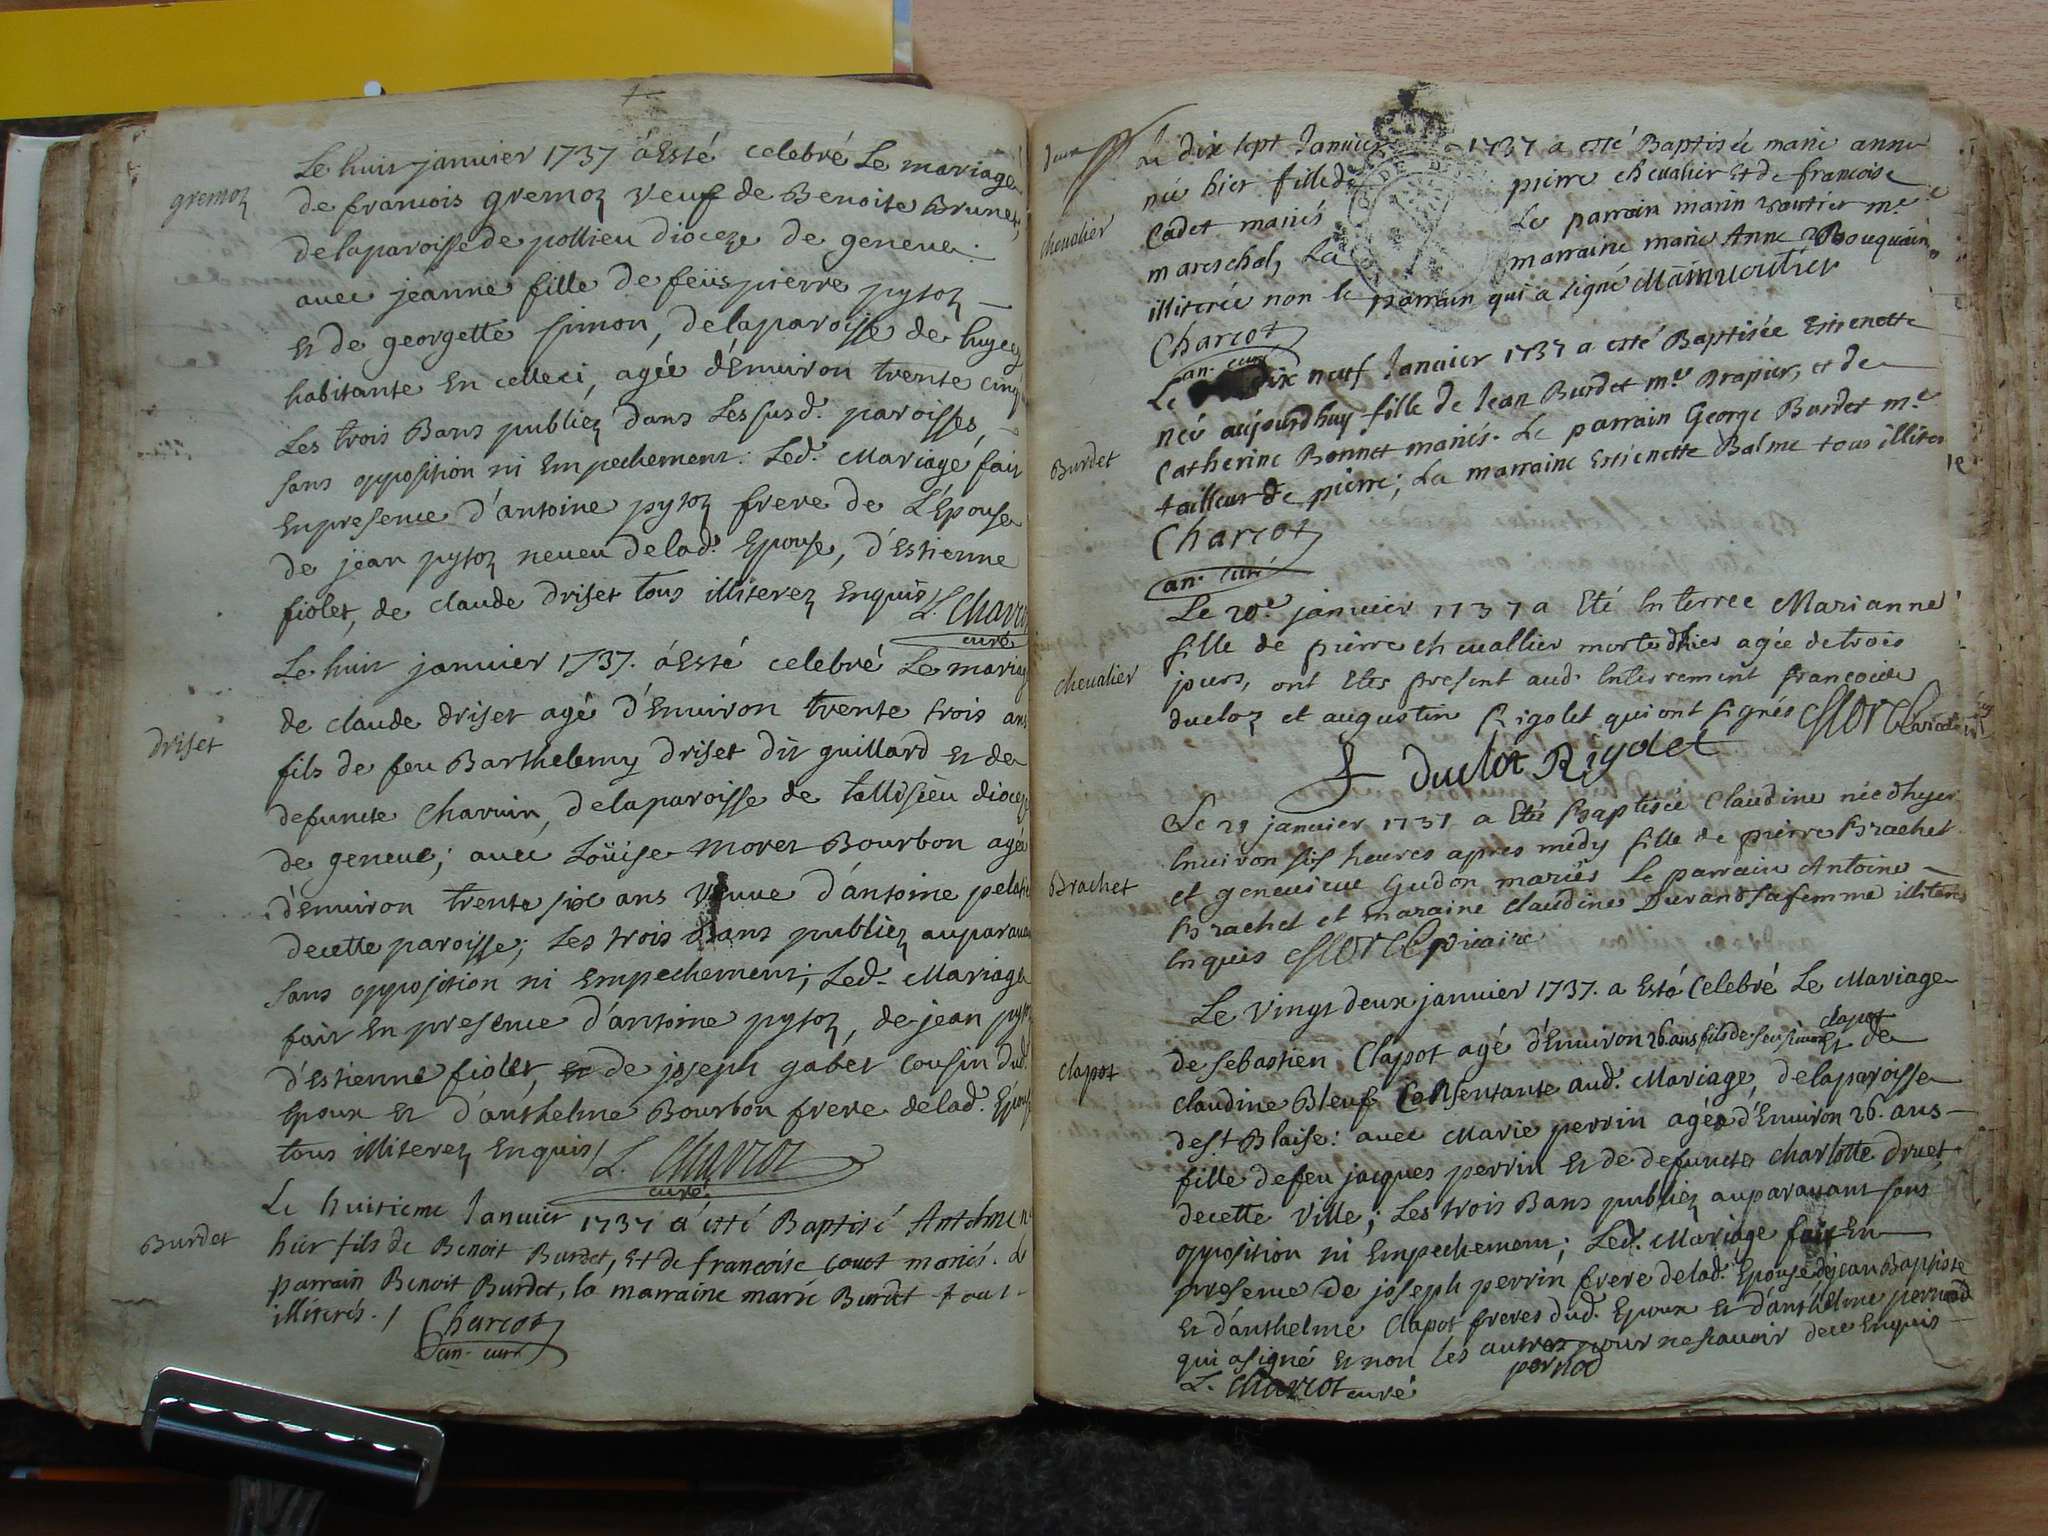 gremoz
Le huit janvier 1737 á Esté celebré Le mariage
de francois gremoz veuf de Benoite Brunet,
de la paroisse de pollieu dioceze de geneve.
avec jeanne fille de feüs pierre pytoz
et de georgette simon, de la paroisse de
habitante En celleci, agée d'Environ trente cinq
Les trois Bans publiez dans Les susd. paroisses,
sans opposition ni Empechement: Led. Mariage fait
En presence d'antoine pytoz frere de L'Epouse
de jean pytoz neveu de lad. Epouse, d'Estienne
fiolet, de claude driset tous illiterez Enquis / L. Charcot
curé
driset
Le huit janvier 1737. á Esté celebré Le mariag
de claude driset agé d'Environ trente trois ans
fils de feu Barthelemy driset dit guillard et de
defuncte Charvin, de la paroisse de tallisieu dioceze
de geneve; avec Loüise moret Bourbon agée
d'Environ trente six ans veuve d'antoine
de cette paroisse; Les trois Bans publiez auparavant
sans opposition ni Empechement; Led. Mariage
fait En presence d'antoine pytoz, de jean pytoz
d'Estienne fiolet, et de joseph gabet Cousin dud.
Epoux et d'anthelme Bourbon frere de lad. Epouse
tous illiterez Enquis / L. Charcot
curé
Burdet
Le huitieme Janvier 1737 a esté Baptisé Antelme n
hier fils de Benoit Burdet, et de francoise couot mariés. Le
parrain Benoit Burdet, la marraine marie Burdet tout
illiterés. / Charcot
an. curé
deux
chevalier
Le dix sept Janvier 1737 a esté Baptisée marie anne
née hier fille de pierre chevalier Et de francoise
Cadet mariés Le parrain marin vautier me.
mareschal, La marraine marie Anne Bouquain
illiterée non le parrain qui a signé
Charcot
an. curé
Burdet
Le dix neuf Janvier 1737 a esté Baptisée Estienette
née aujourdhuy fille de Jean Burdet me. Drapier, et de
Catherine Bonnet mariés. Le parrain George Burdet me.
tailleur de pierre; La marraine Estienette Balme tous illiter
Charcot
an. curé
chevalier
Le 20e. janvier 1737 a Eté Enterree Marianne
fille de pierre chevallier morte dhier agée de trois
jours, ont Etes present aud. Enterrement francoise
ducloz et augustin Rigolet qui ont signés
Duclot Rigolet
Brachet
Le 21 janvier 1737 a Eté Baptisée Claudine née dhyer
Environ six heures apres midy fille de pierre Brachet
et genevieve Gudon mariés Le parrain Antoine
Brachet et maraine claudine Durand sa femme illiteres
Enquis vicaire
clapot
Le vingt deux janvier 1737. a Esté Celebré Le Mariage
de sebastien Clapot agé d'Environ 26 ans fils de feu simon clapot Et de
claudine Bleuf Consentante aud. Mariage, de la paroisse
de St. Blaise: avec Marie perrin agée d'Environ 26. ans
fille de feu jacques perrin et de defuncte charlotte druet
de cette Ville; Les trois Bans publiez auparavant sans
opposition ni Empechement; Led. Mariage fait En
presence de joseph perrin frere de lad. Epouse de jean Baptiste
Et d'anthelme Clapot freres dud. Epoux et d'anthelme pernod
qui a signé et non les autres pour ne scavoir de ce Enquis
pernod
L. Charcot curé